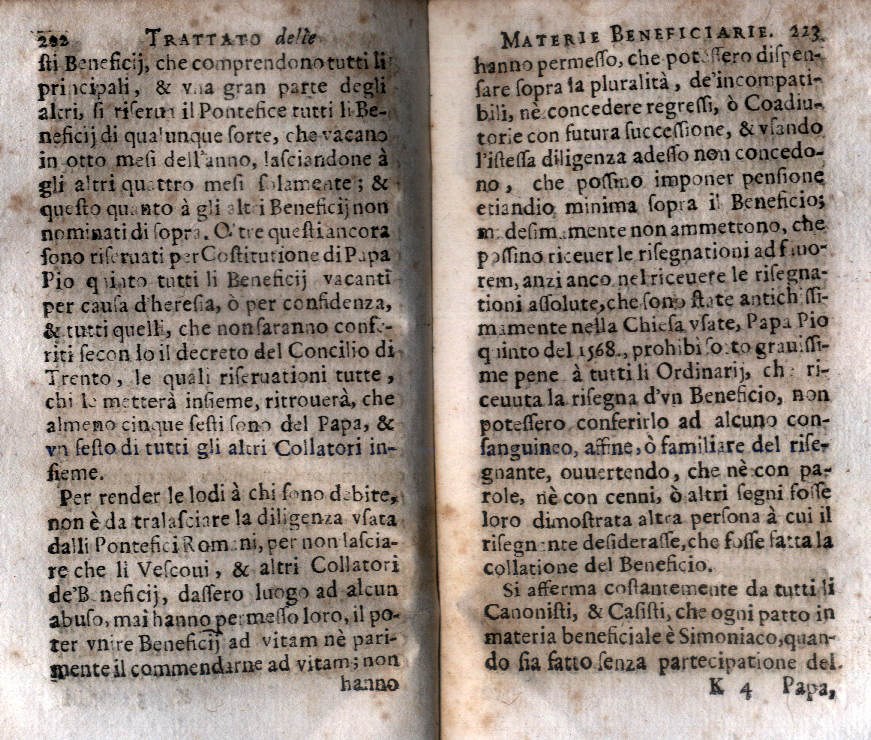 202 TRATTATO delle
ſti Beneficij, che comprendono tutti li
principali, & vna gran parte degli
altri, ſi riſerua il Pontefice tutti li Be-
neficij di qualunque ſorte, che vacano
in otto meſi dell'anno, laſciandone à
gli altri quattro meſi ſolamente; &
queſto quanto à gli altri Beneficij non
nominati di ſopra. Oltre queſti ancora
ſono riſeruati per Coſtitutione di Papa
Pio quinto tutti li Beneficij vacanti
per cauſa d'hereſia, ò per confidenza,
& tutti quelli, che non ſaranno confe-
riti ſecondo il decreto del Concilio di
Trento, le quali riſeruationi tutte,
chi le metterà inſieme, ritrouerà, che
almeno cinque ſeſti ſono del Papa, &
vn ſeſto di tutti gli altri Collatori in-
ſieme.
Per render le lodi à chi ſono debite,
non è da tralaſciare la diligenza vſata
dalli Pontefici Romani, per non laſcia-
re che li Veſcoui, & altri Collatori
de'Beneficij, daſſero luogo ad alcun
abuſo, mai hanno permeſſo loro, il po-
ter vnire Beneficij ad vitam nè pari-
mente il commendarne ad vitam; non
hanno
MATERIE BENEFICIARIE. 223
hanno permeſſo, che poteſſero diſpen-
ſare ſopra la pluralità, de'incompati-
bili, nè concedere regreſſi, ò Coadiu-
torie con futura ſucceſſione, & vſando
l'iſteſſa diligenza adeſſo non concedo-
no, che poſſino imponer penſione
etiandio minima ſopra il Beneficio;
medeſimamente non ammettono, che
poſſino riceuer le riſegnationi ad fauo-
rem, anzi anco nel riceuere le riſegna-
tioni aſſolute, che ſono ſtate antichiſſi-
mamente nella Chieſa vſate, Papa Pio
quinto del 1568., prohibì ſotto grauiſſi-
me pene à tutti li Ordinarij, che ri-
ceuuta la riſegna d'vn Beneficio, non
poteſſero conferirlo ad alcuno con-
ſanguineo, affine, ò familiare del riſe-
gnante, ouuertendo, che nè con pa-
role, nè con cenni, ò altri ſegni foſſe
loro dimoſtrata altra perſona à cui il
riſegnante deſideraſſe, che foſſe fatta la
collatione del Beneficio.
Si afferma coſtantemente da tutti li
Canoniſti, & Caſiſti, che ogni patto in
materia beneficiale è Simoniaco, quan-
do ſia fatto ſenza partecipatione del
K 4 Papa,